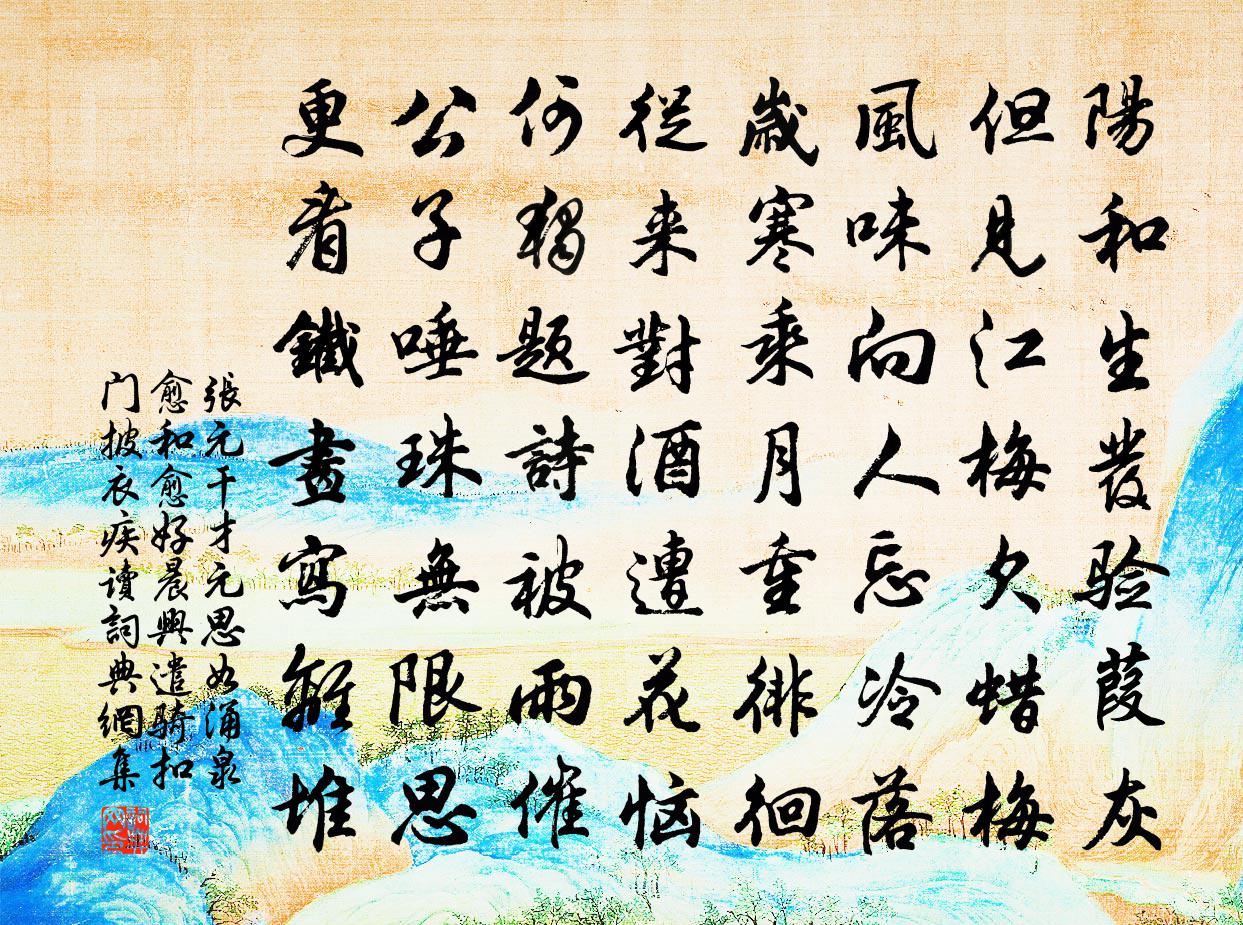 陽和生發验葭灰
但見江梅欠蜡梅
風味向人忘冷落
歲寒乘月重徘徊
從来對酒遭花恼
何獨題詩被雨催
公子唾珠無限思
更看鐵畫寫離堆
張元干才元思如涌泉
愈和愈好晨興遣骑扣
门披衣疾讀詞典網集